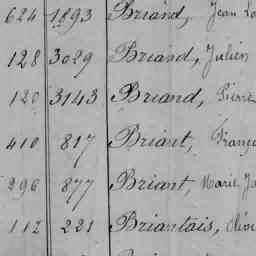 624 1893 Briand, Jean Lo
128 3029 Briand, Julien
120 3143 Briand, Pierre
410 817 Briant, Franço
296 877 Briant, Marie Ja
112 221 Briantais, Olivi